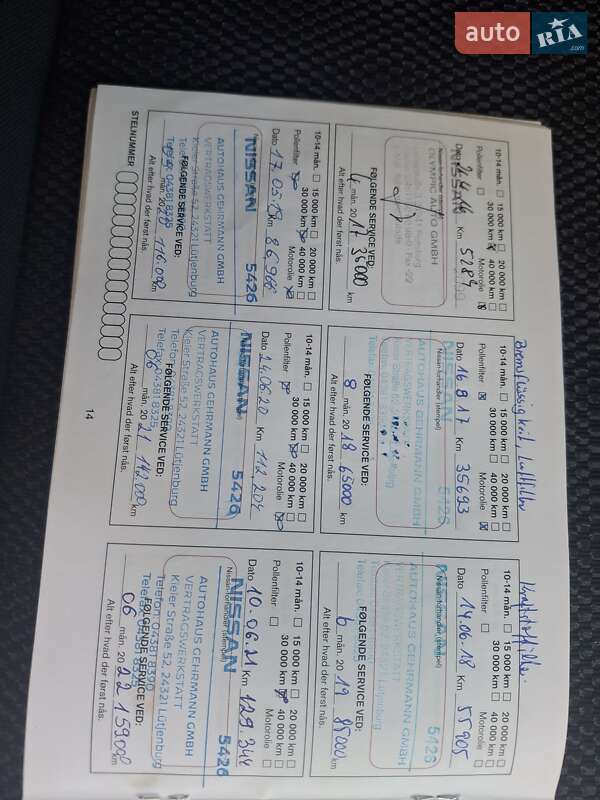 auto RIA.com
10-14 mån. 15 000 km 20 000 km
30 000 km 40 000 km
Pollenfilter Motorolie
Dato Km 5289
Nissan-forhandler (stempel)
OLYMPIC AUTO GMBH
FØLGENDE SERVICE VED:
4 mån. 20 17 35000 km
Alt efter hvad der først nås.
Bremsflüssigkeit, Luftfilter
10-14 mån. 15 000 km 20 000 km
30 000 km 40 000 km
Pollenfilter Motorolie
Dato 16 8 17 Km 35693
Nissan-forhandler (stempel)
NISSAN 5426
AUTOHAUS GEHRMANN GMBH
VERTRAGSWERKSTATT
FØLGENDE SERVICE VED:
8 mån. 20 18 65000 km
Alt efter hvad der først nås.
10-14 mån. 15 000 km 20 000 km
30 000 km 40 000 km
Pollenfilter Motorolie
Dato 14.06.18 Km 55905
Nissan-forhandler (stempel)
5426
AUTOHAUS GEHRMANN GMBH
VERTRAGSWERKSTATT
FØLGENDE SERVICE VED:
6 mån. 20 19 85000 km
Alt efter hvad der først nås.
10-14 mån. 15 000 km 20 000 km
30 000 km 40 000 km
Pollenfilter Motorolie
Dato 17.05.19 Km 86966
NISSAN 5426
AUTOHAUS GEHRMANN GMBH
VERTRAGSWERKSTATT
Kieler Straße 52, 24321 Lütjenburg
FØLGENDE SERVICE VED:
Telefax 04381 8325
mån. 20 20 116.000 km
Alt efter hvad der først nås.
10-14 mån. 15 000 km 20 000 km
30 000 km 40 000 km
Pollenfilter Motorolie
Dato 24.06.20 Km 112.204
NISSAN 5426
AUTOHAUS GEHRMANN GMBH
VERTRAGSWERKSTATT
Kieler Straße 52, 24321 Lütjenburg
FØLGENDE SERVICE VED:
Telefax 04381 8325
06 mån. 20 21 142.000 km
Alt efter hvad der først nås.
10-14 mån. 15 000 km 20 000 km
30 000 km 40 000 km
Pollenfilter Motorolie
Dato 10.06.21 Km 129.344
Nissan-forhandler (stempel)
NISSAN 5426
AUTOHAUS GEHRMANN GMBH
VERTRAGSWERKSTATT
Kieler Straße 52, 24321 Lütjenburg
Telefon 04381 8390
FØLGENDE SERVICE VED:
Telefax 04381 8325
06 mån. 20 22 159000 km
Alt efter hvad der først nås.
STELNUMMER
14